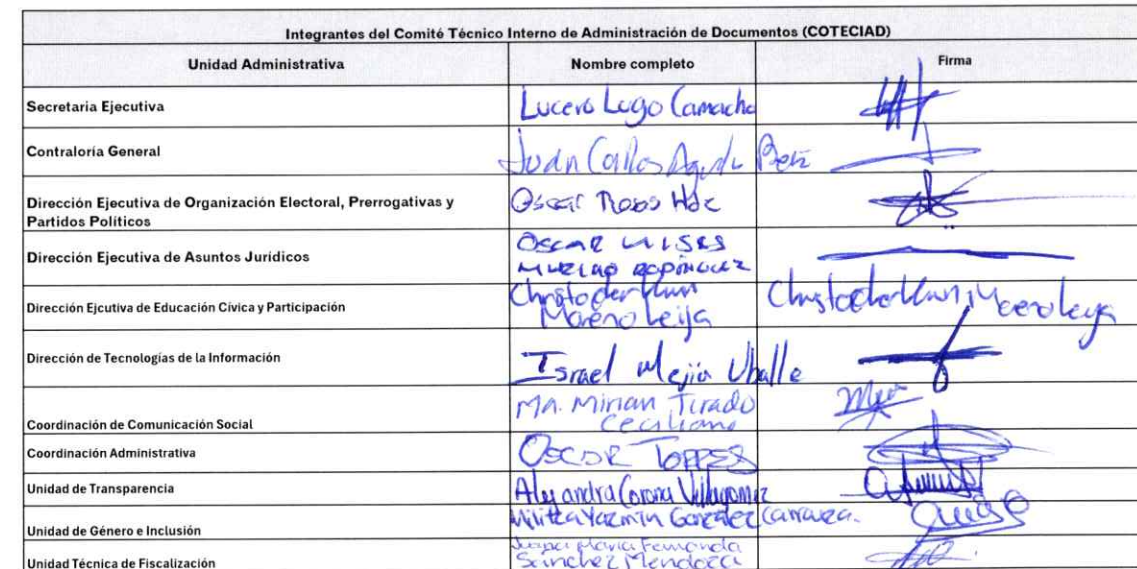 Integrantes del Comité Técnico Interno de Administración de Documentos (COTECIAD)
Unidad Administrativa Nombre completo Firma
Secretaria Ejecutiva Lucero Lugo Camacho
Contraloría General Juan Carlos
Dirección Ejecutiva de Organización Electoral, Prerrogativas y
Partidos Políticos
Oscar Hdz
Dirección Ejecutiva de Asuntos Jurídicos
Oscar
Dirección Ejcutiva de Educación Cívica y Participación
Moreno Leija
Dirección de Tecnologías de la Información Israel Mejía Uballe
Coordinación de Comunicación Social
Ma. Mirian Tirado
Ceciliano
Coordinación Administrativa Oscar Torres
Unidad de Transparencia Alejandra Corona Villagomez
Unidad de Género e Inclusión Militza Yazmin González Carranza.
Unidad Técnica de Fiscalización
María Fernanda
Sánchez Mendoza